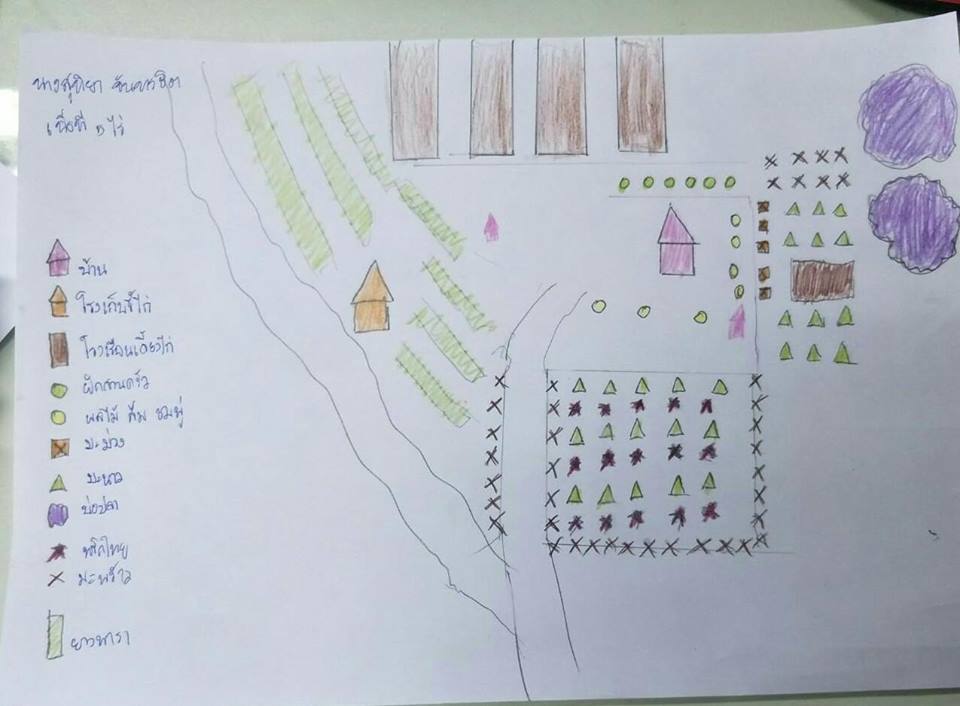 เนื้อที่ ๖ ไร่
บ้าน
โรงเก็บขี้ไก่
โรงเรือนเลี้ยงไก่
ผักสวนครัว
ผลไม้ ส้ม ชมพู่
มะม่วง
มะนาว
บ่อปลา
พริกไทย
มะพร้าว
ยางพารา